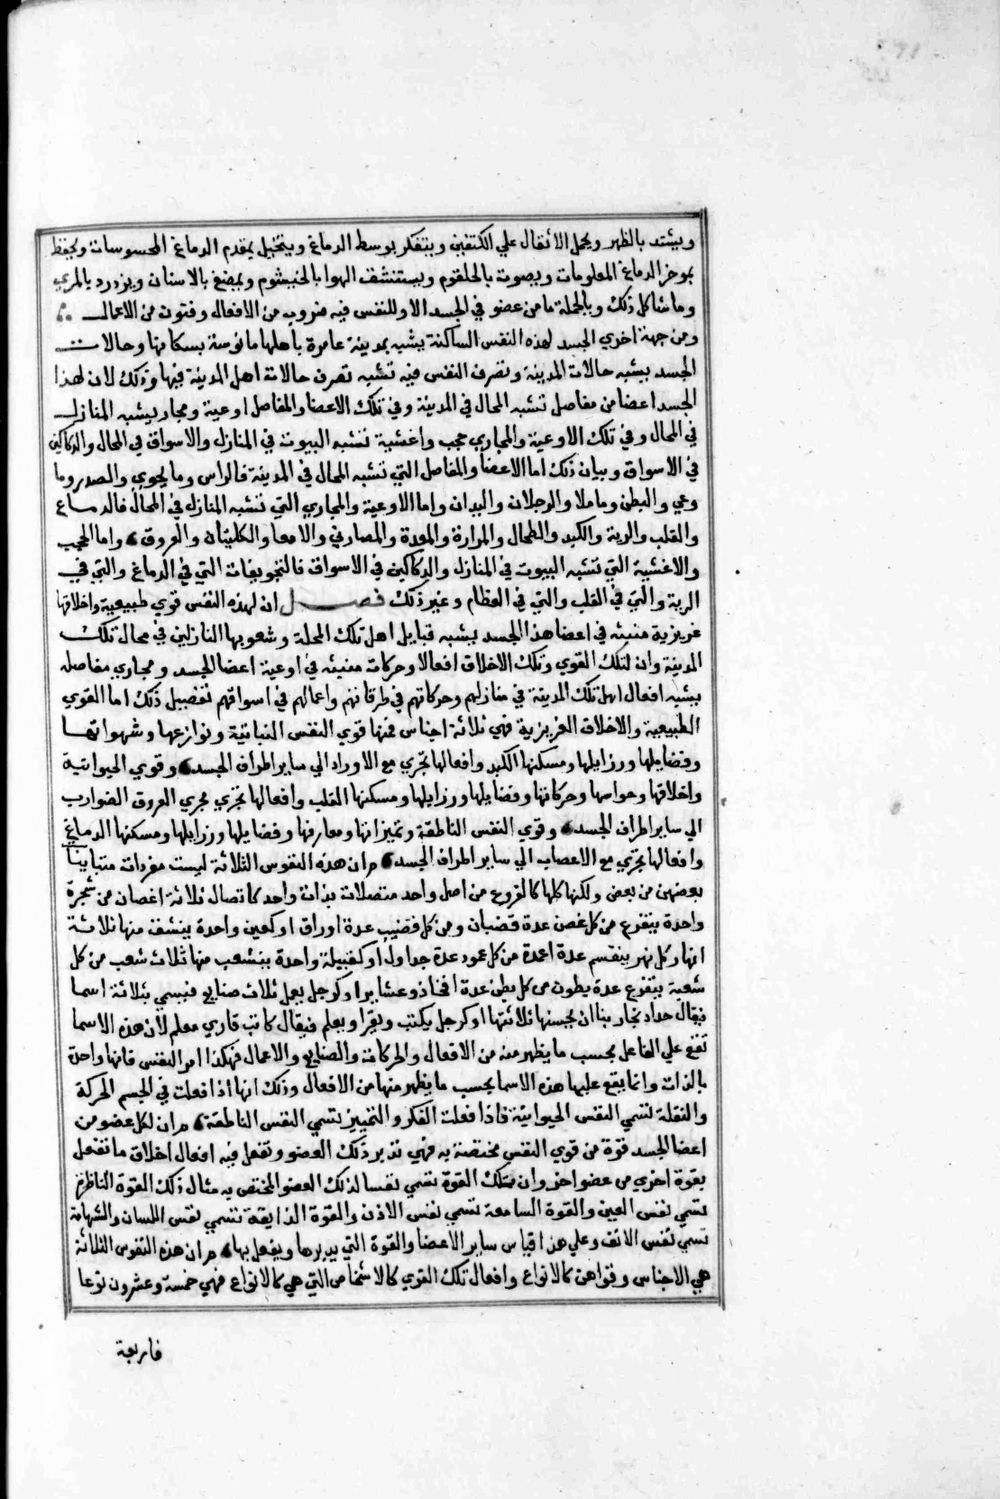 ويشتد بالظهر ويحمل الاثقال علي الكتفين ويتفكر بوسط الدماغ ويتخيل بمقدم الدماغ المحسوسات ويحفظ
بموخر الدماغ المعلومات ويصوت بالحلقوم ويستنشف الهوا بالخيشوم ويمضغ بالاسنان ويزدرد بالمري
وما شاكل ذلك وبالجملة ما من عضو في الجسد الا وللنفس فيه ضروب من الافعال وفنون من الاعمال
ومن جهة اخري الجسد لهذه النفس الساكنة يشبه بمدينة عامرة باهلها مانوسة بسكانها وحالات
الجسد يشبه حالات المدينة وتصرف النفس فيه تشبه تصرف حالات اهل المدينة فيها وذلك لان لهذا
الجسد اعضا من مفاصل تشبه المحال في المدينة وفي تلك الاعضا والمفاصل اوعية ومجار يشبه المنازل
في المحال وفي تلك الاوعية والمجاري حجب واغشية تشبه البيوت في المنازل والاسواق في المحال والدكاكين
في الاسواق وبيان ذلك اما الاعضا والمفاصل التي تشبه المحال في المدينة فالراس وما يحوي والصدر وما
وعي والبطن وما ملا والرجلان واليدان واما الاوعية والمجاري التي تشبه المنازل في المحال فالدماغ
والقلب والرية والكبد والطحال والمرارة والمعدة والمصارين والامعا والكليتان والعروق واما الحجب
والاغشية التي تشبه البيوت في المنازل والدكاكين في الاسواق فالتجويفات التي في الدماغ والتي في
الرية والتي في القلب والتي في العظام وغير ذلك فصل ان لهذه النفس قوي طبيعية واخلاقها
غريزية منبثه في اعضا هذا الجسد يشبه قبايل اهل تلك المحلة وشعوبها النازلين في محال تلك
المدينة وان لتلك القوي وتلك الاخلاق افعالا وحركات منبثه في اوعية اعضا الجسد ومجاري مفاصله
يشبه افعال اهل تلك المدينة في منازلهم وحركاتهم في طرقاتهم واعمالهم في اسواقهم تفصيل ذلك اما القوي
الطبيعية والاخلاق الغريزية فهي ثلاثة اجناس فمنها قوي النفس النباتية ونوازعها وشهواتها
وفضايلها ورزايلها ومسكنها الكبد وافعالها تجري مع الاوراد الي ساير اطراف الجسد وقوي الحيوانية
واخلاقها وحواسها وحركاتها وفضايلها ورزايلها ومسكنها القلب وافعالها تجري مجري العروق الضوارب
الي ساير اطراف الجسد وقوي النفس الناطقة وتميزاتها ومعارفها وفضايلها ورزايلها ومسكنها الدماغ
وافعالها تجري مع الاعصاب الي ساير اطراف الجسد ان هذه النفوس الثلاثة ليست مفردات متباينا
بعضهن من بعض ولكنها كلها كالفروع من اصل واحد متصلات بذات واحد كاتصال ثلاثة اغصان من شجرة
واحدة يتفرع من كل غصن عدة قضبان ومن كل قضيب عدة اوراق او كعين واحدة ينشق منها ثلاثة
انهار كل نهر ينقسم عدة اعمدة من كل عمود عدة جداول او كقبيلة واحدة ينشعب منها ثلاث شعب من كل
شعبة يتفرع عدة بطون من كل بطن عدة افخاذ وعشاير او كرجل يعمل ثلاث صنايع فيسمي بثلاثة اسما
فيقال حداد نجار بنا ان يحسنها ثلاثتها او كرجل يكتب ويقرا ويعلم فيقال كاتب قاري معلم لان هذه الاسما
تقع علي الفاعل بحسب ما يظهر منه من الافعال والحركات والصنايع والاعمال فهكذا امر النفس فانها واحدة
بالذات وانما يقع عليها هذه الاسما بحسب ما يظهر منها من الافعال وذلك انها اذا فعلت في الجسم الحركة
والنقلة لتسمي النفس الحيوانية فاذا فعلت الفكر والتمييز يتسمي النفس الناطقة ان لكل عضو من
اعضا الجسد قوة من قوي النفس مختصة به فهي تدبر ذلك العضو وتفعل فيه افعال اخلاق ما تفعل
بقوة اخري من عضو اخر وان فتلك القوة تسمي نفسا لذلك العضو المختص به مثال ذلك القوة الناظرة
تسمي نفس العين والقوة السامعة تسمي نفس الاذن والقوة الذايقة تسمي نفس اللسان والشهامة
تسمي نفس الانف وعلي هذا قياس ساير الاعضا والقوة التي يدبرها ويفعل بها ان هذه النفوس الثلاثة
هي الاجناس وقواهن كالانواع وافعال تلك القوي كالاشخاص التي هي كالانواع فهي خمسة وعشرون نوعا
فاربعة